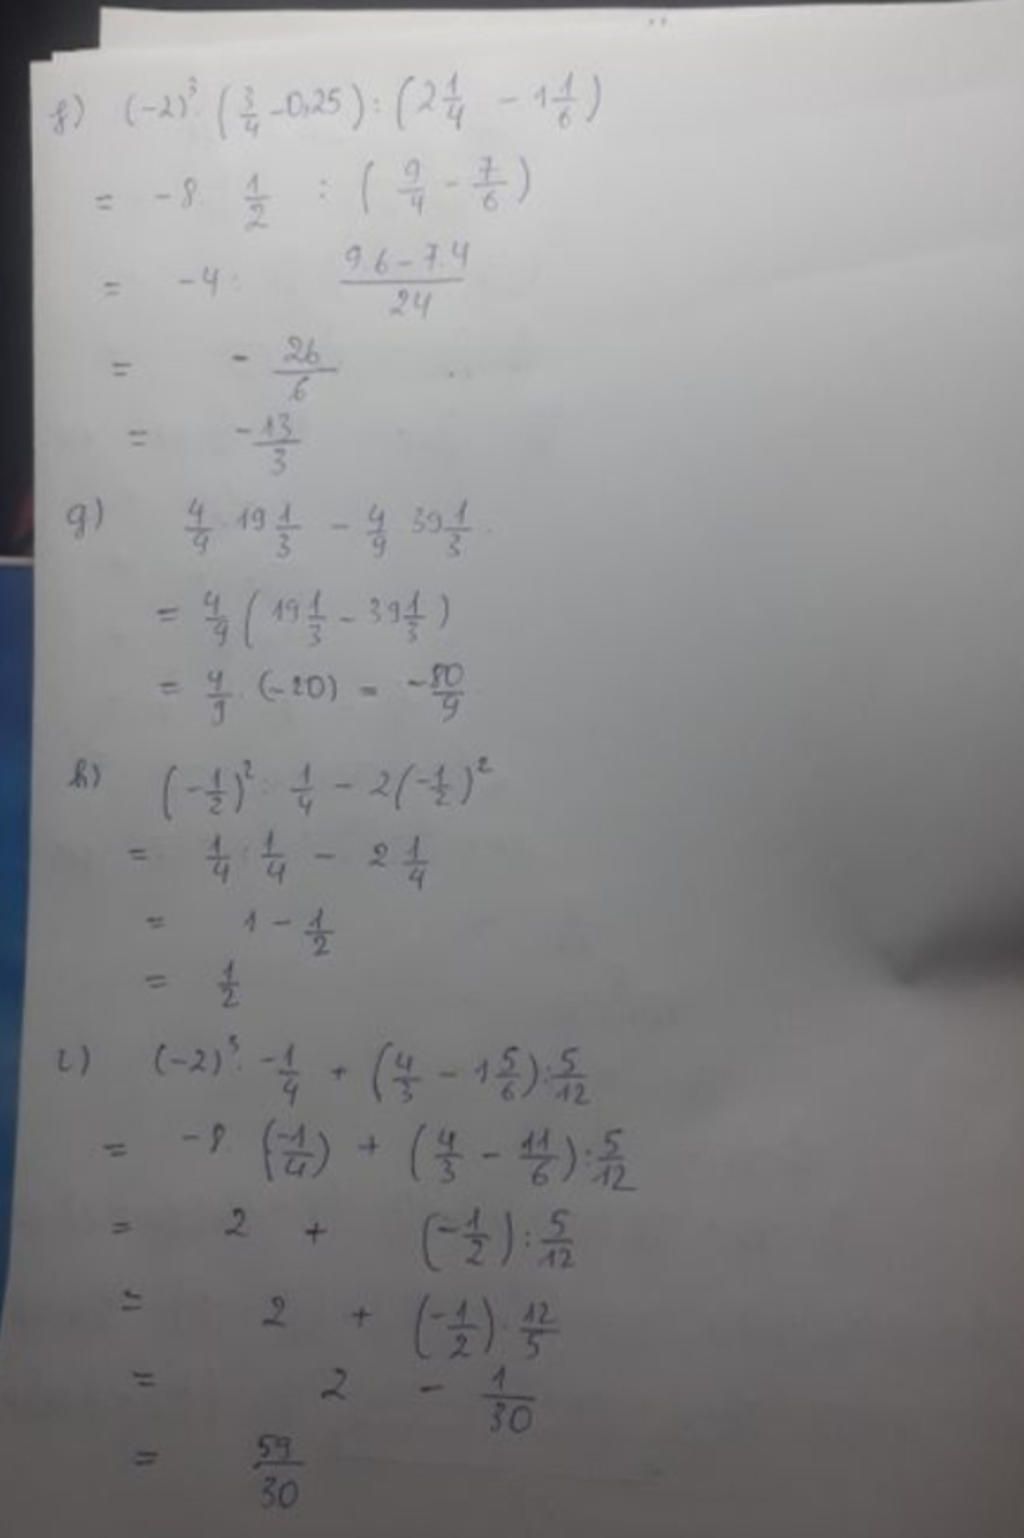 f) (-2)³ · (3/4 - 0,25) : (2 1/4 - 1 1/6)
= -8 · 1/2 : (9/4 - 7/6)
= -4 : (9.6 - 7.4)/24
= - 26/6
= -13/3
g) 4/9 · 19 1/3 - 4/9 39 1/3
= 4/9 (19 1/3 - 39 1/3)
= 4/9 · (-20) = -80/9
h) (-1/2)² : 1/4 - 2(-1/2)²
= 1/4 : 1/4 - 2 1/4
= 1 - 1/2
= 1/2
i) (-2)³ · -1/4 + (4/3 - 1 5/6) : 5/12
= -8 · (-1/4) + (4/3 - 11/6) : 5/12
= 2 + (-1/2) : 5/12
= 2 + (-1/2) · 12/5
= 2 - 1/30
= 59/30